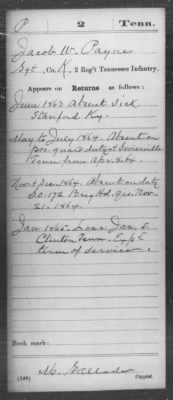 P 2 Tenn.
Jacob W. Payne
Sgt., Co. K, 2 Reg't Tennessee Infantry.
Appears on Returns as follows:
June 1863 Absent Sick
Stanford Ky.
May to July 1864. Absent on
pro. guard duty at Sevierville
Tenn from Apr. 20. 64.
Nov & Dec 1864. Absent on duty
S.O. 172 Brig Hd. Qrs. Nov.
21. 1864.
Jan 1865. Jan. 5.
Clinton Tenn. Exp. of
term of service.
Book mark:
(546) Copyist.